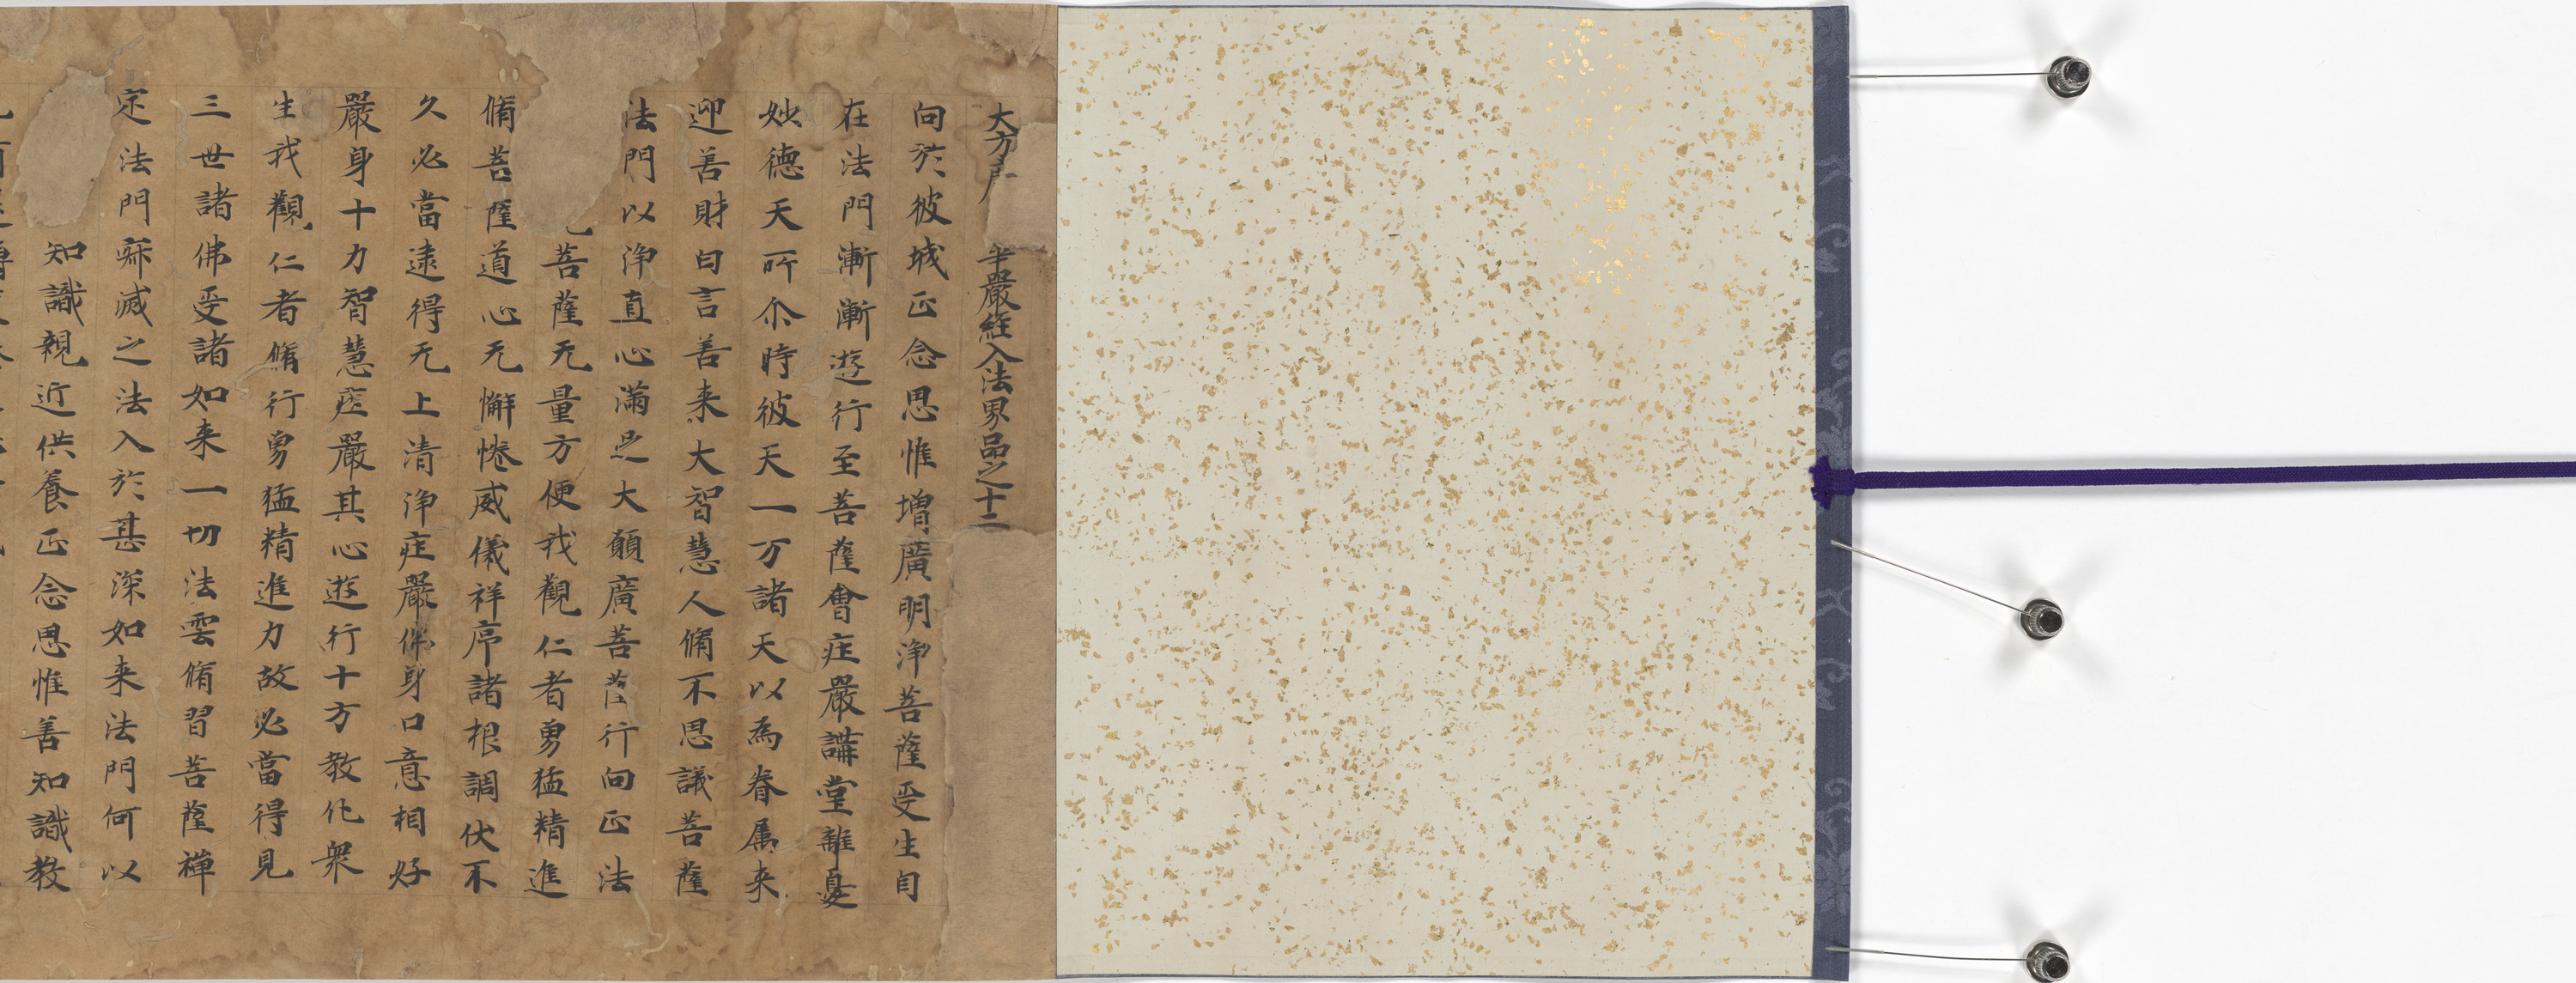 大方 嚴經入法界品之十二
向於彼城正念思惟增廣明淨菩薩受生自
在法門漸漸遊行至菩薩會庄嚴講堂離憂
妙德天所尒時彼天一万諸天以為眷属来
迎善財白言善来大智慧人脩不思議菩薩
法門以淨直心滿足大願廣菩薩行向正法
菩薩无量方便我觀仁者勇猛精進
脩菩薩道心无懈惓威儀祥序諸根調伏不
久必當逮得无上清淨庄嚴佛身口意相好
嚴身十力智慧庄嚴其心遊行十方教化衆
生我觀仁者脩行勇猛精進力故必當得見
三世諸佛受諸如来一切法雲脩習菩薩禪
定法門寂滅之法入於甚深如来法門何以
知識親近供養正念思惟善知識教